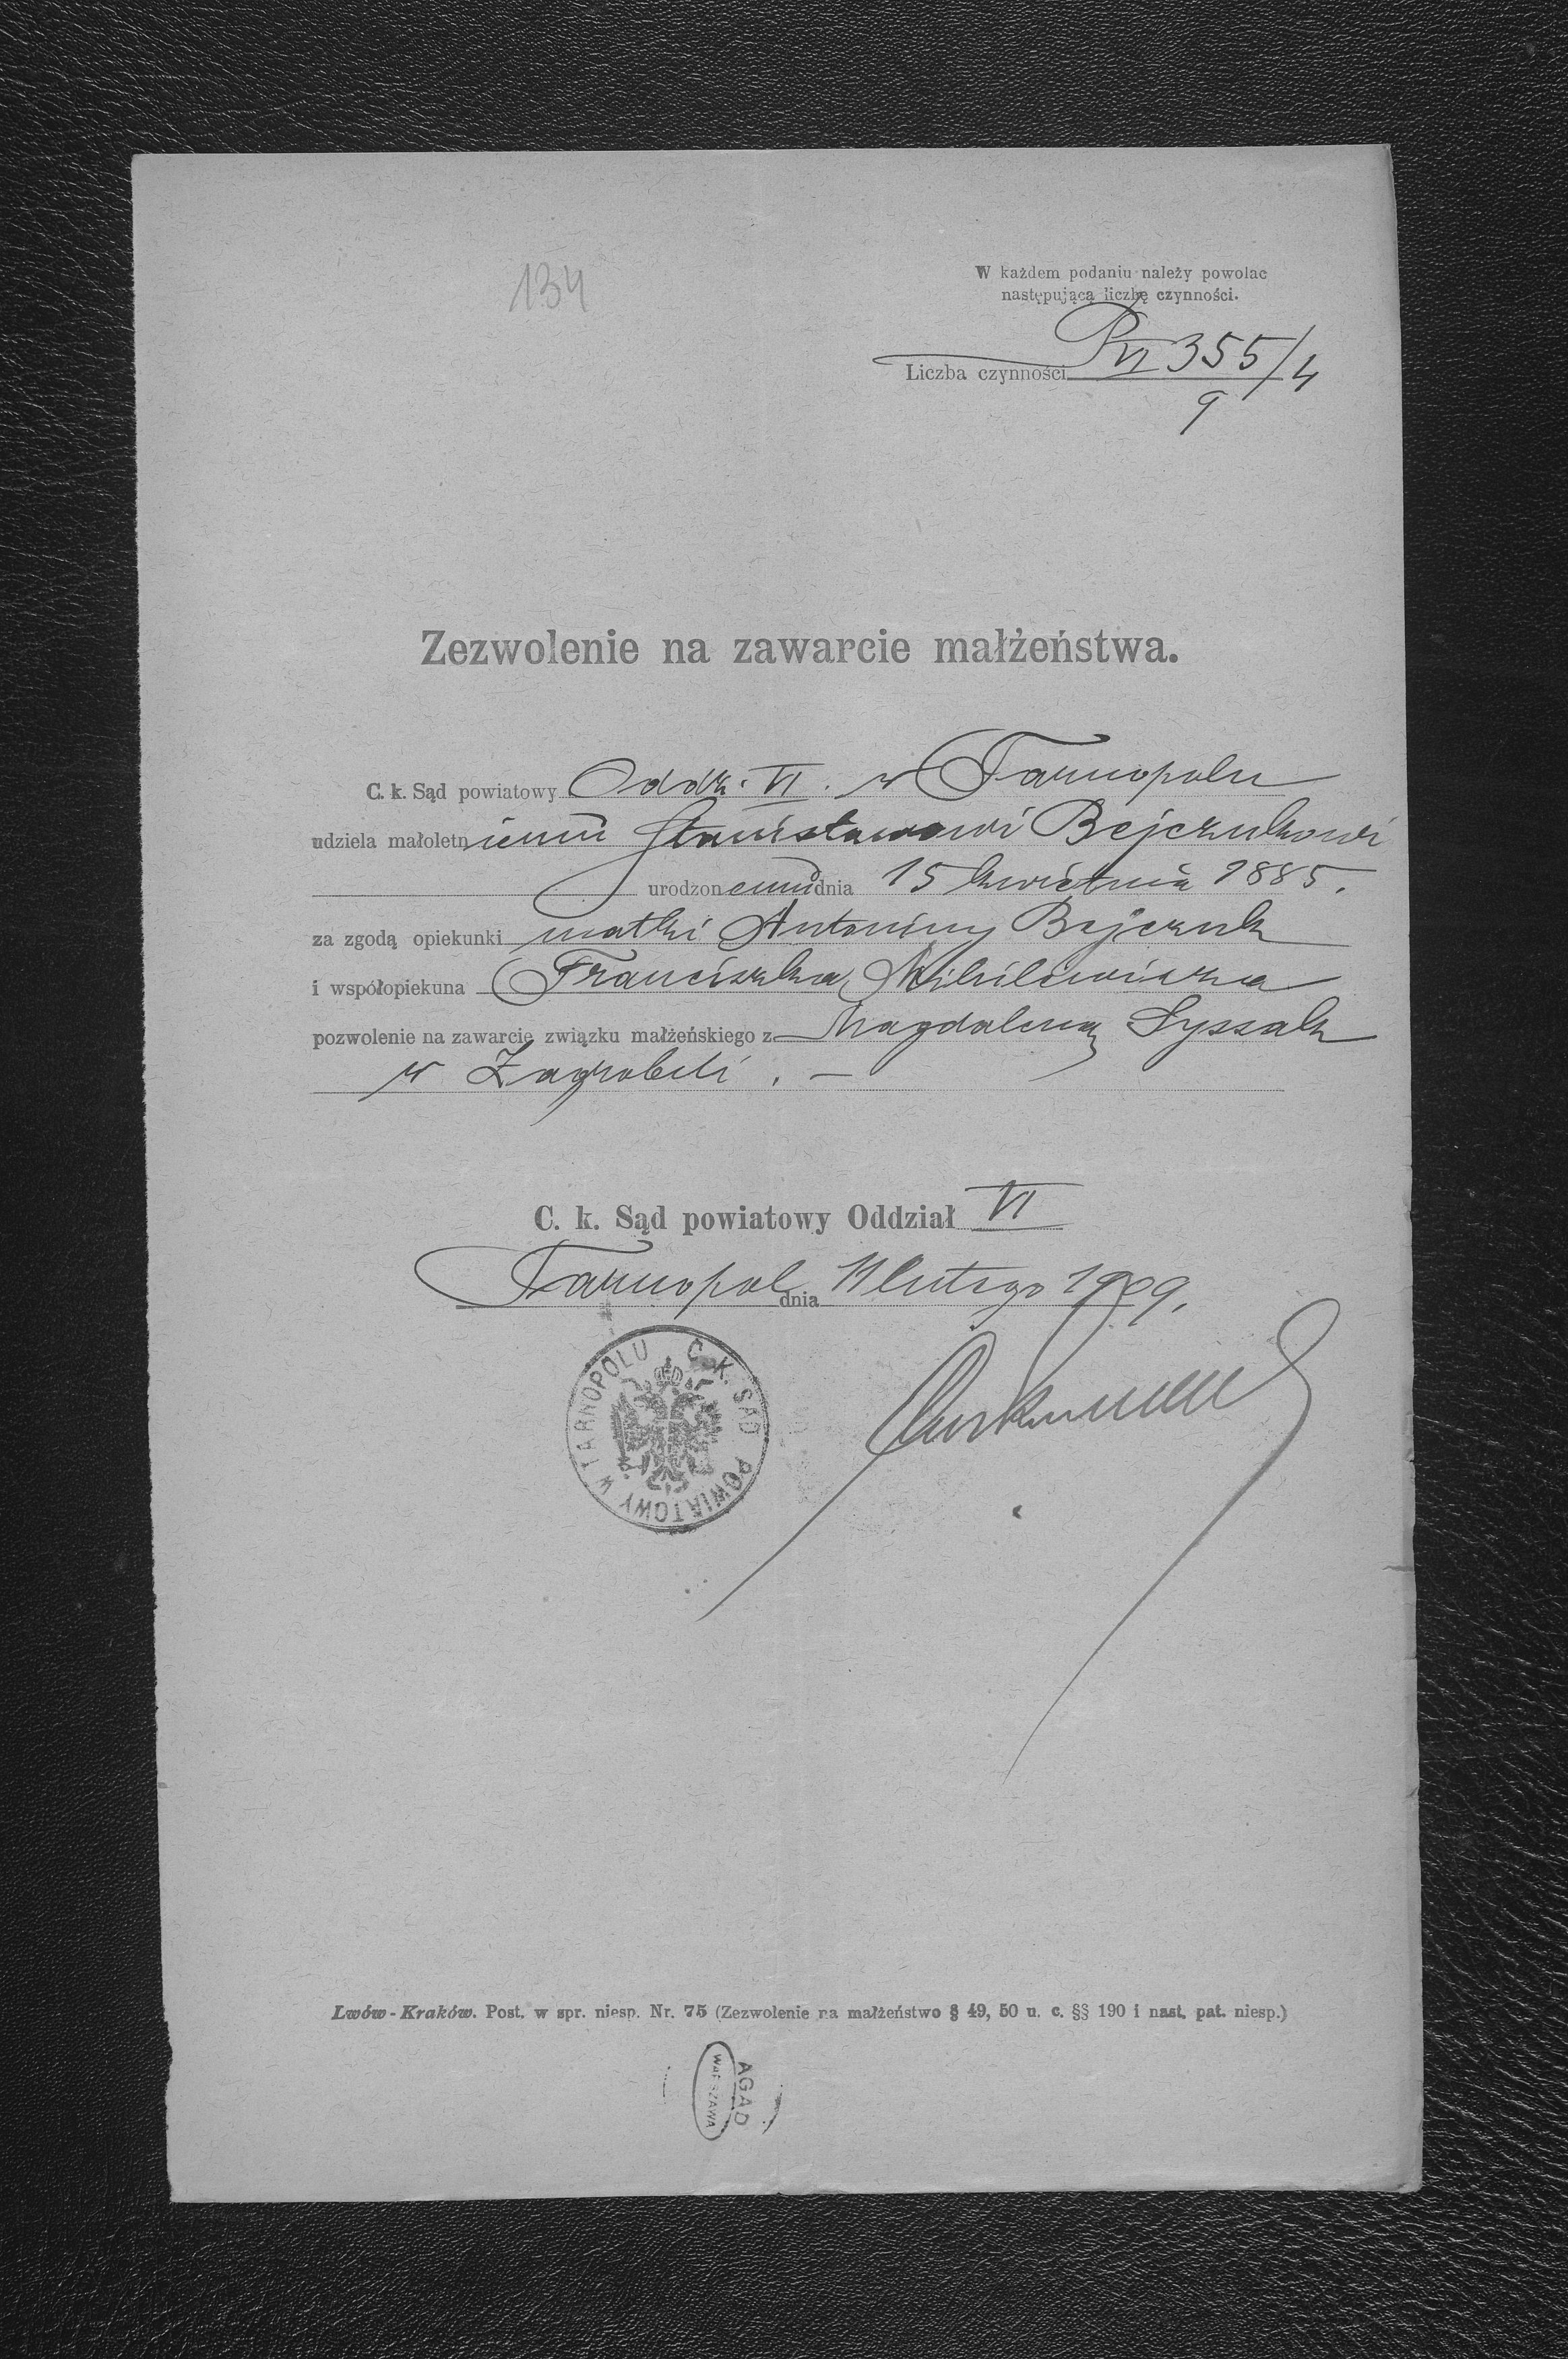 134
W każdem podaniu należy powołac
następującą liczbę czynności.
Liczba czynności P VI 355/4
9
Zezwolenie na zawarcie małżeństwa.
C. k. Sąd powiatowy Oddz. VI. w Tarnopolu
udziela małoletniemu Stanisławowi Bejczukowi
urodzonemu dnia 15 kwietnia 1885.
za zgodą opiekunki matki Antoniny Bejczuk
i współopiekuna Franciszka Mihilewicza
pozwolenie na zawarcie związku małżeńskiego z Magdaleną Łyssak
w Zagrobeli. —
C. k. Sąd powiatowy Oddział VI
Tarnopol dnia 11 lutego 1909.
C. K. SĄD POWIATOWY W TARNOPOLU
Lwów - Kraków. Post. w spr. niesp. Nr. 75 (Zezwolenie na małżeństwo § 49, 50 u. c. §§ 190 i nast. pat. niesp.)
AGAD
WARSZAWA